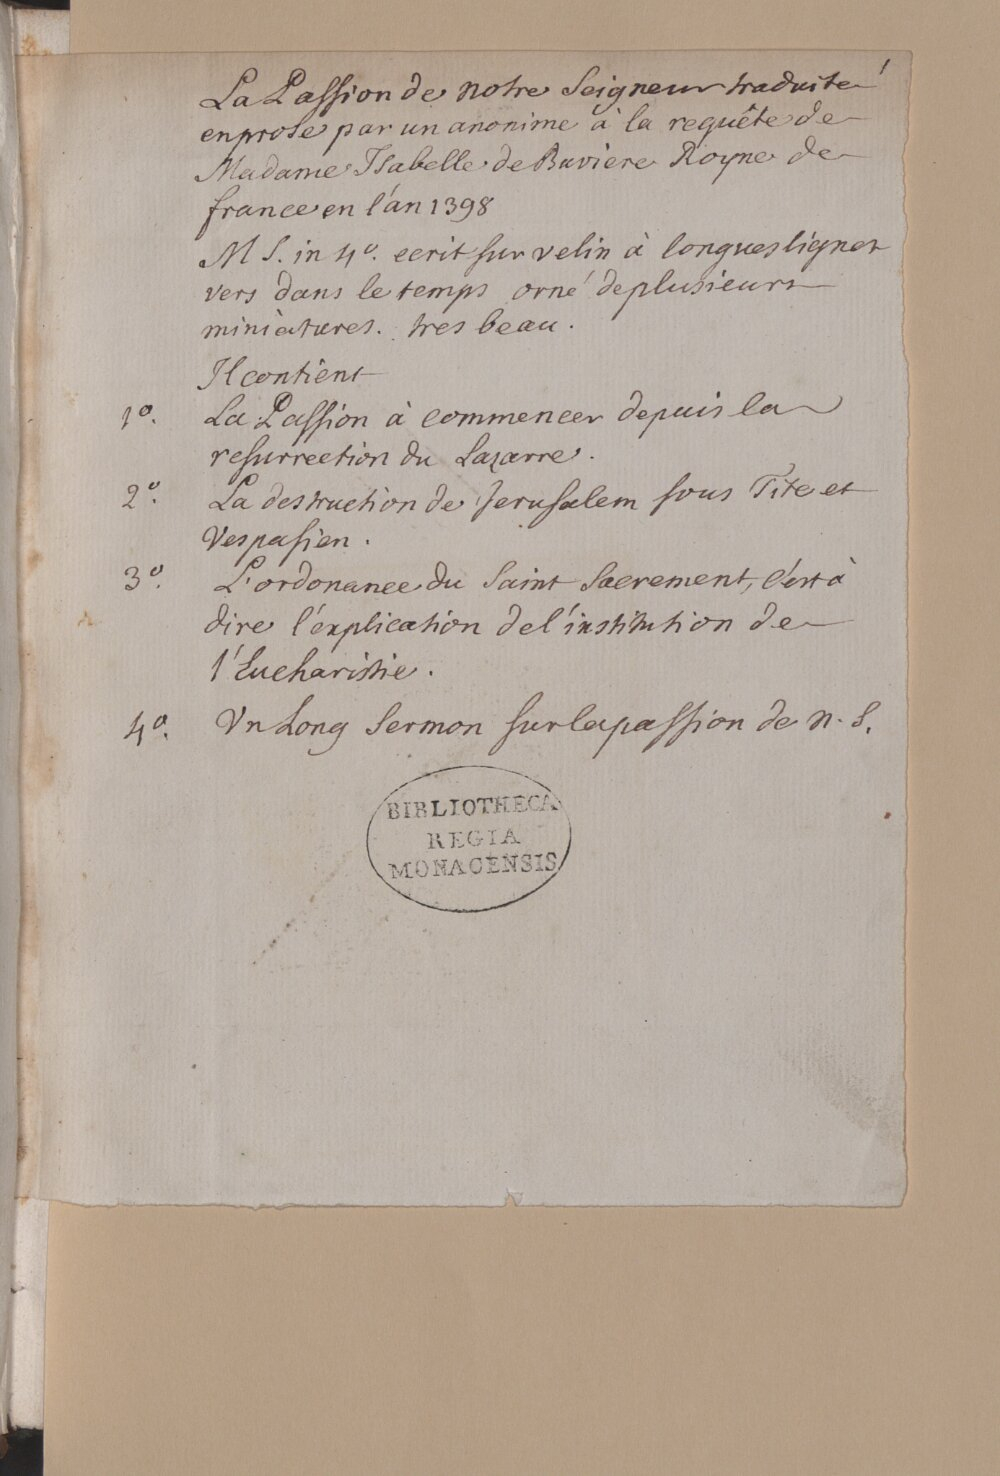 La Passion de notre Seigneur traduite
en prose par un anonime à la requête de
Madame Isabelle de Baviere Royne de
france en l'an 1398
M S. in 4º. ecrit sur velin à longues lignes
vers dans le temps orné de plusieurs
miniatures. tres beau.
Il contient
1º. La Passion à commencer depuis la
resurrection du Lazarre.
2º. La destruction de Jerusalem sous Tite et
Vespasien.
3º. L'ordonance du Saint Sacrement, c'est à
dire l'explication de l'institution de
l'Eucharistie.
4º. Un Long Sermon sur la passion de n. S.
BIBLIOTHECA
REGIA
MONACENSIS